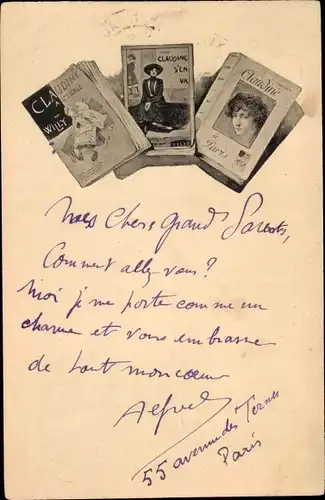 CLAUDINE
A L'ECOLE
WILLY
CLAUDINE
S'EN
VA
WILLY
Claudine
à
Paris
Mes Chers Grand Parents,
Comment allez vous ?
Moi je me porte comme un
charme et vous embrasse
de tout mon coeur
Alfred
55 avenue des Ternes
Paris